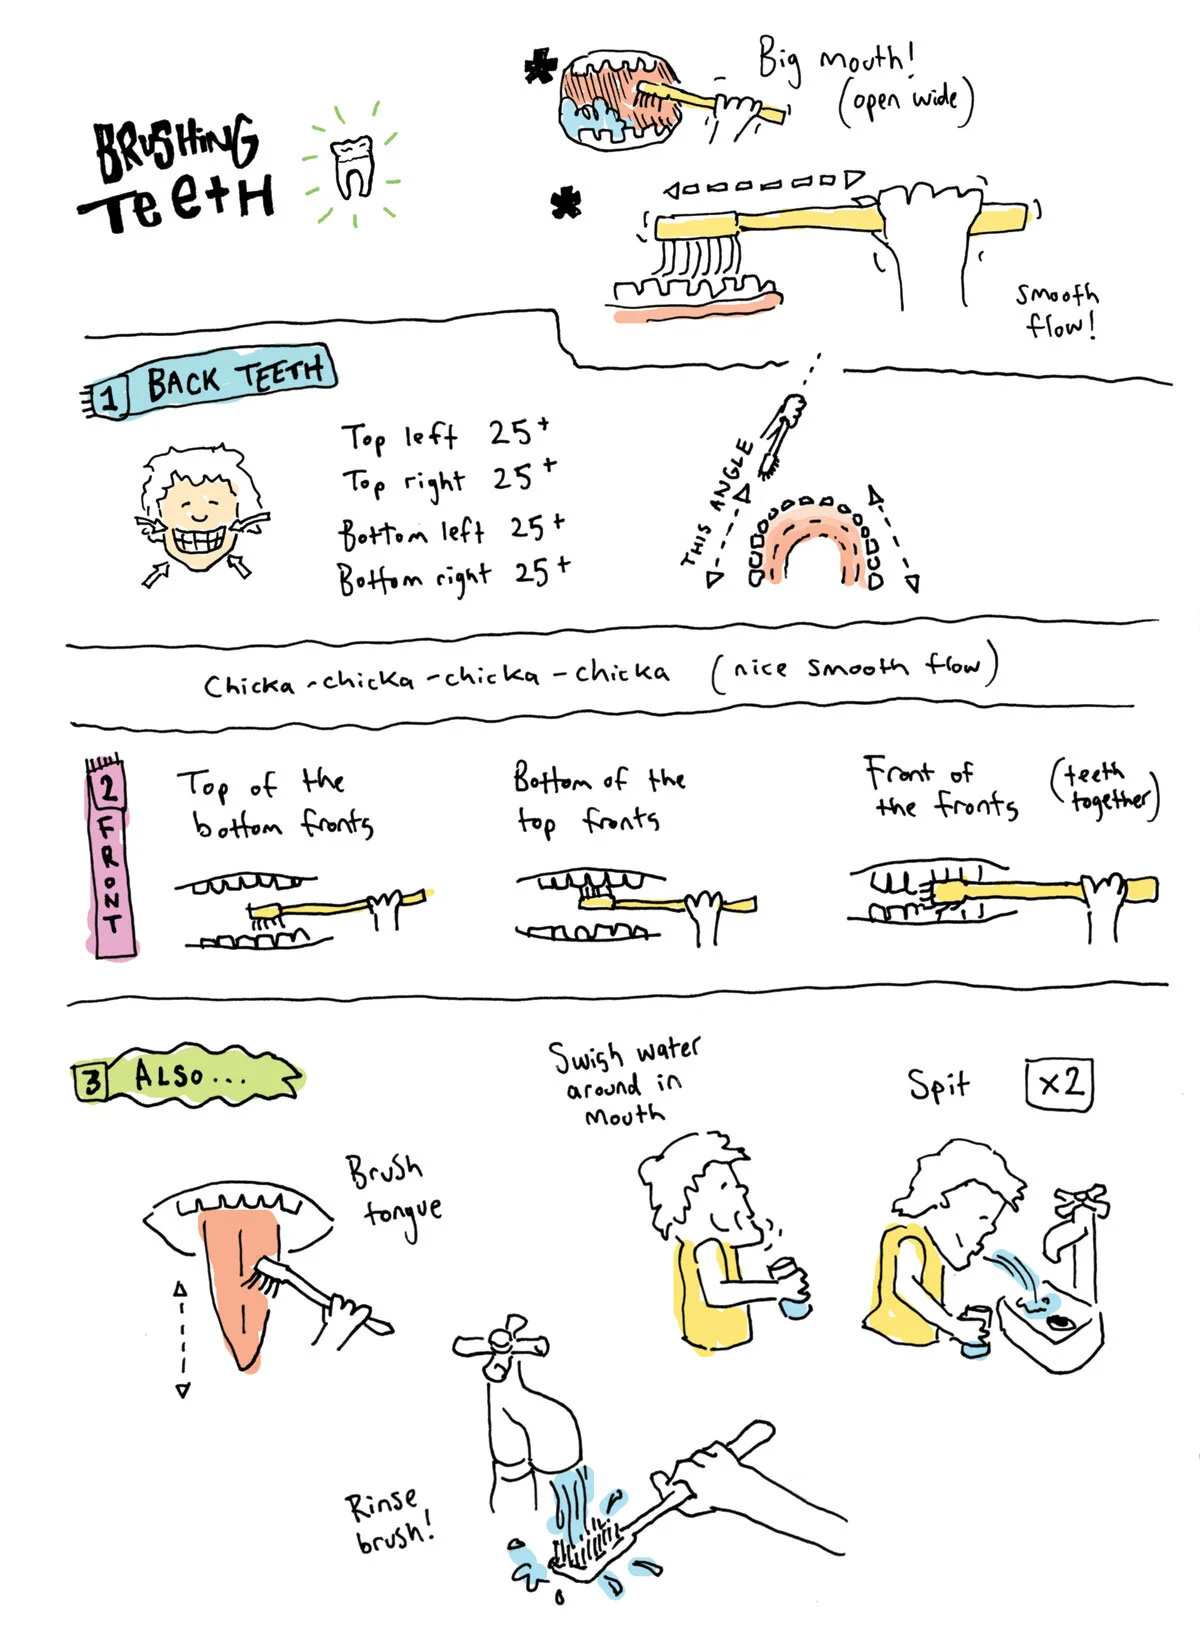 BRUSHING
TEETH
Big mouth!
(open wide)
smooth
flow!
1 BACK TEETH
Top left 25+
Top right 25+
Bottom left 25+
Bottom right 25+
THIS ANGLE
Chicka-chicka-chicka-chicka (nice smooth flow)
2 FRONT
Top of the
bottom fronts
Bottom of the
top fronts
Front of
the fronts
(teeth
together)
3 ALSO...
Brush
tongue
Swish water
around in
mouth
Spit x2
Rinse
brush!